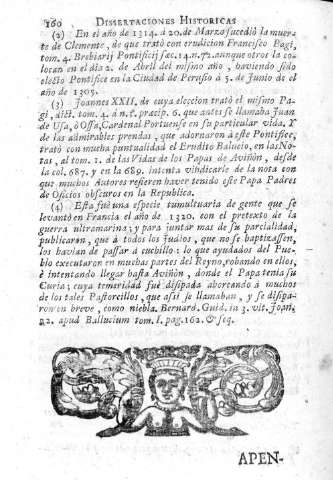 160 DISSERTACIONES HISTORICAS
(2) En el año de 1314. à 20. de Marzo sucediò la muer-
te de Clemente, de que tratò con erudicion Francisco Pagi,
tom. 4. Breviarij Pontificij sæc. 14. n. 72. aunque otros la co-
locan en el dia 2. de Abril del mismo año, haviendo sido
electo Pontifice en la Ciudad de Perusio à 5. de Junio de el
año de 1305.
(3) Joannes XXII. de cuya eleccion tratò el mismo Pa-
gi, dict. tom. 4. à n. 1. præcip. 6. que antes se llamaba Juan
de Usa, ò Ossa, Cardenal Portuense en su particular vida, Y
de las admirables prendas, que adoraron à este Pontifice,
tratò con mucha puntualidad el Erudito Balucio, en las No-
tas, al tom. 1. de las Vidas de los Papas de Aviñòn, desde
la col. 687. y en la 689. intenta vindicarle de la nota con
que muchos Autores refieren haver tenido este Papa Padres
de Oficios obscuros en la Republica.
(4) Esta fuè una especie tumultuaria de gente que se
levantò en Francia el año de 1320. con el pretexto de la
guerra ultramarina; y para juntar mas de su parcialidad,
publicaràn, que à todos los Judios, que no se baptizassen,
los havian de passar à cuchillo: lo que ayudados del Pue-
blo executaron en muchas partes del Reyno, robando en ellos,
è intentando llegar hasta Aviñòn, donde el Papa tenia su
Curia; cuya temeridad fuè disipada ahorcando à muchos
de los tales Pastorcillos, que assi se llamaban, y se disipa-
ron en breve, como niebla. Bernard. Guid. in 3. vit. Joan.
22. apud Ballucium tom. 1. pag. 162. & seq.
APEN-